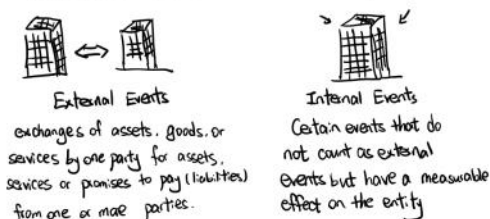 External Events
exchanges of assets, goods, or
services by one party for assets,
services or promises to pay (liabilities)
from one or more parties.
Internal Events
Certain events that do
not count as external
events but have a measurable
effect on the entity